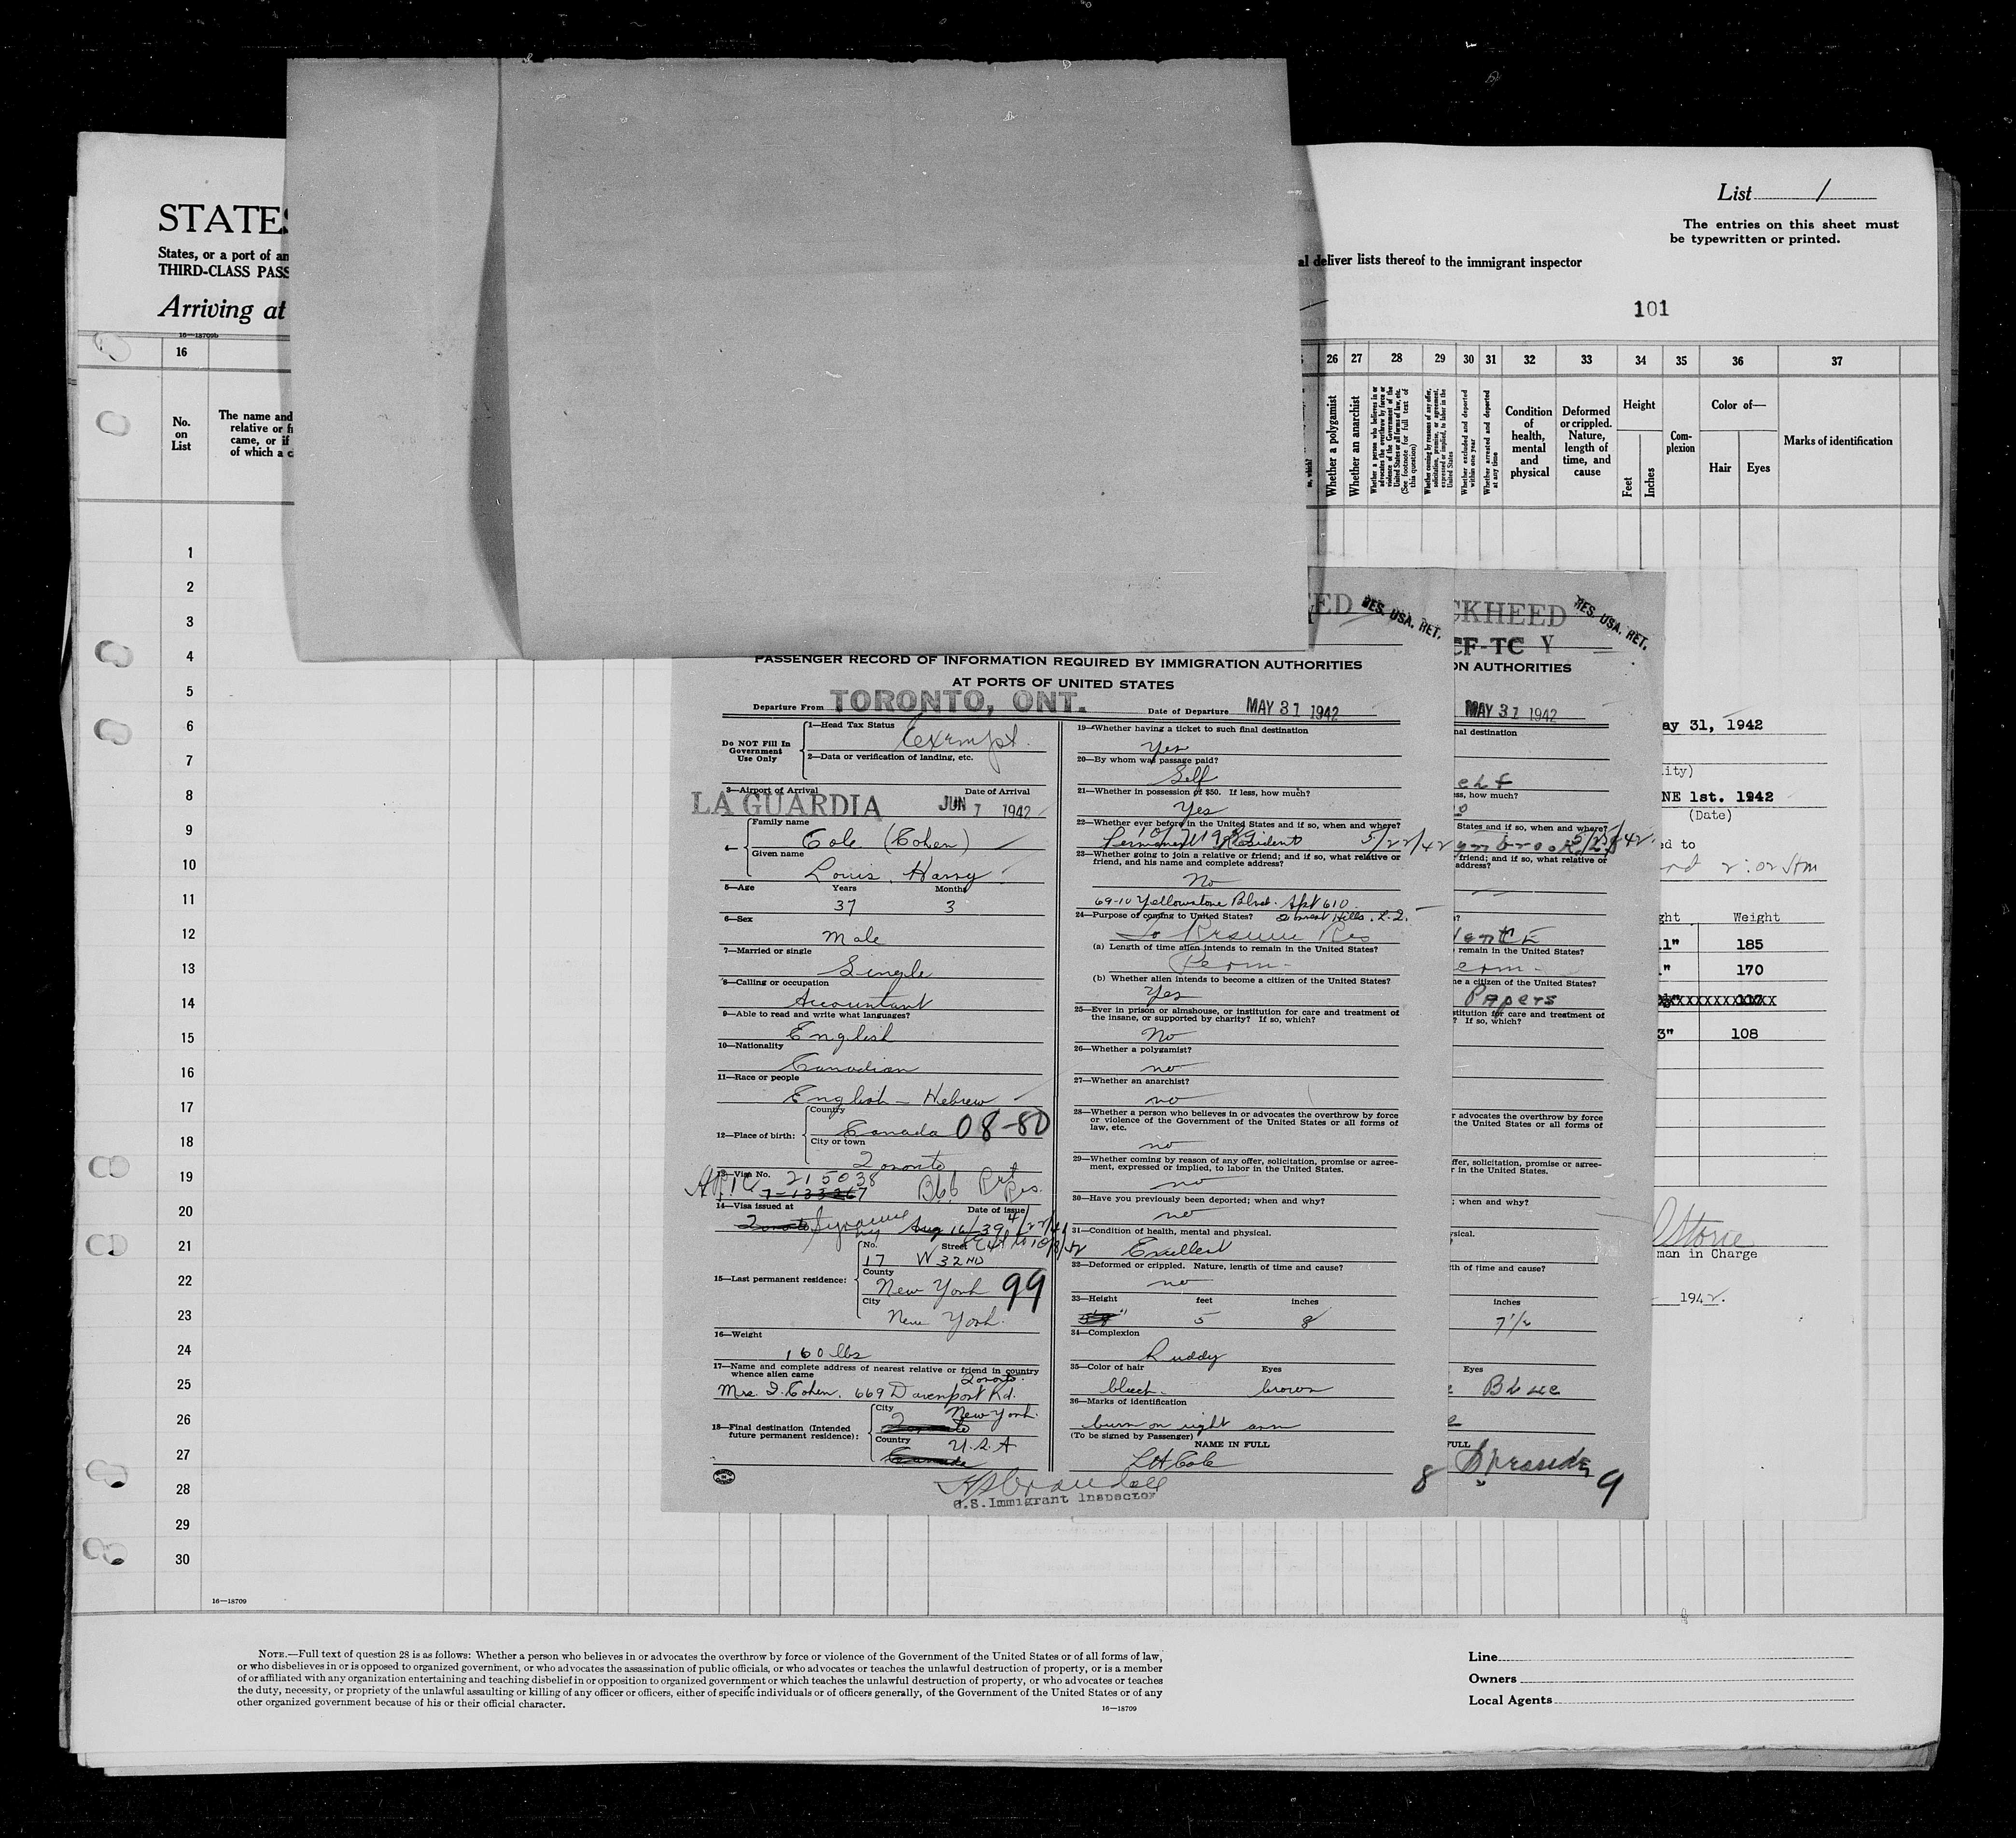 STATES
States, or a port of an
THIRD-CLASS PASS
Arriving at
16—18709b
List 1
The entries on this sheet must
be typewritten or printed.
al deliver lists thereof to the immigrant inspector
101
16
26 27 28 29 30 31 32 33 34 35 36 37
No.
on
List
The name and
relative or fr
came, or if
of which a c
Whether a polygamist
Whether an anarchist
Whether a person who believes in or advocates the overthrow by force or violence of the Government of the United States or all forms of law, etc. (See footnote for full text of this question)
Whether coming by reasons of any offer, solicitation, promise, or agreement, expressed or implied, to labor in the United States
Whether excluded and deported within one year
Whether arrested and deported at any time
Condition
of
health,
mental
and
physical
Deformed
or crippled.
Nature,
length of
time, and
cause
Height
Feet
Inches
Com-
plexion
Color of—
Hair
Eyes
Marks of identification
1
2
3
4
5
6
7
8
9
10
11
12
13
14
15
16
17
18
19
20
21
22
23
24
25
26
27
28
29
30
16—18709
RES. USA. RET.
PASSENGER RECORD OF INFORMATION REQUIRED BY IMMIGRATION AUTHORITIES
AT PORTS OF UNITED STATES
Departure From TORONTO, ONT. Date of Departure MAY 31 1942
Do NOT Fill In
Government
Use Only
1—Head Tax Status
Exempt.
2—Data or verification of landing, etc.
3—Airport of Arrival Date of Arrival
LA GUARDIA JUN 1 1942
4—
Family name
Cole (Cohen)
Given name
Louis, Harry
5—Age Years Months
37 3
6—Sex
Male
7—Married or single
Single
8—Calling or occupation
Accountant
9—Able to read and write what languages?
English
10—Nationality
Canadian
11—Race or people
English - Hebrew
12—Place of birth:
Country
Canada 08-80
City or town
Toronto
13—Visa No. 215038
14—Visa issued at Date of issue
Toronto Aug 16/39
15—Last permanent residence:
No. Street
17 W 32ND
County
New York 99
City
New York.
16—Weight
160 lbs
17—Name and complete address of nearest relative or friend in country
whence alien came
Toronto.
Mrs. I. Cohen. 669 Davenport Rd.
18—Final destination (Intended
future permanent residence):
City
Toronto New York.
Country
Canada U.S.A
19—Whether having a ticket to such final destination
Yes
20—By whom was passage paid?
Self
21—Whether in possession of $50. If less, how much?
Yes
22—Whether ever before in the United States and if so, when and where?
Permanent Resident 5/22/42
23—Whether going to join a relative or friend; and if so, what relative or
friend, and his name and complete address?
No
69-10 Yellowstone Blvd. Apt 610
24—Purpose of coming to United States? Forest Hills. L.I.
To Resume Res
(a) Length of time alien intends to remain in the United States?
Perm-
(b) Whether alien intends to become a citizen of the United States?
Yes
25—Ever in prison or almshouse, or institution for care and treatment of
the insane, or supported by charity? If so, which?
No
26—Whether a polygamist?
no
27—Whether an anarchist?
no
28—Whether a person who believes in or advocates the overthrow by force
or violence of the Government of the United States or all forms of
law, etc.
no
29—Whether coming by reason of any offer, solicitation, promise or agree-
ment, expressed or implied, to labor in the United States.
no
30—Have you previously been deported; when and why?
no
31—Condition of health, mental and physical.
Excellent
32—Deformed or crippled. Nature, length of time and cause?
no
33—Height feet inches
5 8
34—Complexion
Ruddy
35—Color of hair Eyes
black. brown
36—Marks of identification
burn on right arm
(To be signed by Passenger)
NAME IN FULL
LH Cole
U.S. Immigrant Inspector
8
CKHEED
RES. USA. RET.
CF-TC Y
ON AUTHORITIES
MAY 31 1942
nal destination
elf
ss, how much?
States and if so, when and where?
friend; and if so, what relative or
address?
remain in the United States?
erm-
e a citizen of the United States?
Papers
stitution for care and treatment of
? If so, which?
r advocates the overthrow by force
the United States or all forms of
ffer, solicitation, promise or agree-
r in the United States.
; when and why?
ysical.
th of time and cause?
inches
7½
Eyes
Blue
FULL
9
ay 31, 1942
ity)
NE 1st. 1942
(Date)
ed to
ght Weight
11" 185
" 170
3" 108
man in Charge
1942.
NOTE.—Full text of question 28 is as follows: Whether a person who believes in or advocates the overthrow by force or violence of the Government of the United States or of all forms of law,
or who disbelieves in or is opposed to organized government, or who advocates the assassination of public officials, or who advocates or teaches the unlawful destruction of property, or is a member
of or affiliated with any organization entertaining and teaching disbelief in or opposition to organized government or which teaches the unlawful destruction of property, or who advocates or teaches
the duty, necessity, or propriety of the unlawful assaulting or killing of any officer or officers, either of specific individuals or of officers generally, of the Government of the United States or of any
other organized government because of his or their official character.
16—18709
Line
Owners
Local Agents